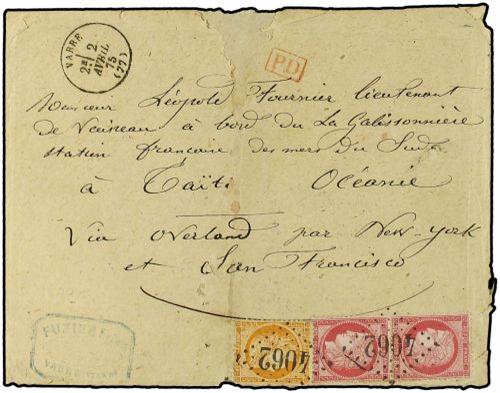 VABRE
2E
2
AVRIL
75
(77)
PD
Monsieur Léopold Fournier lieutenant
de Vaisseau à bord du La Galissonnière
station française des mers du Sud
à Taïti Océanie
Via Overland par New-York
et San Francisco
FUZIER
VABRE
4062
4062